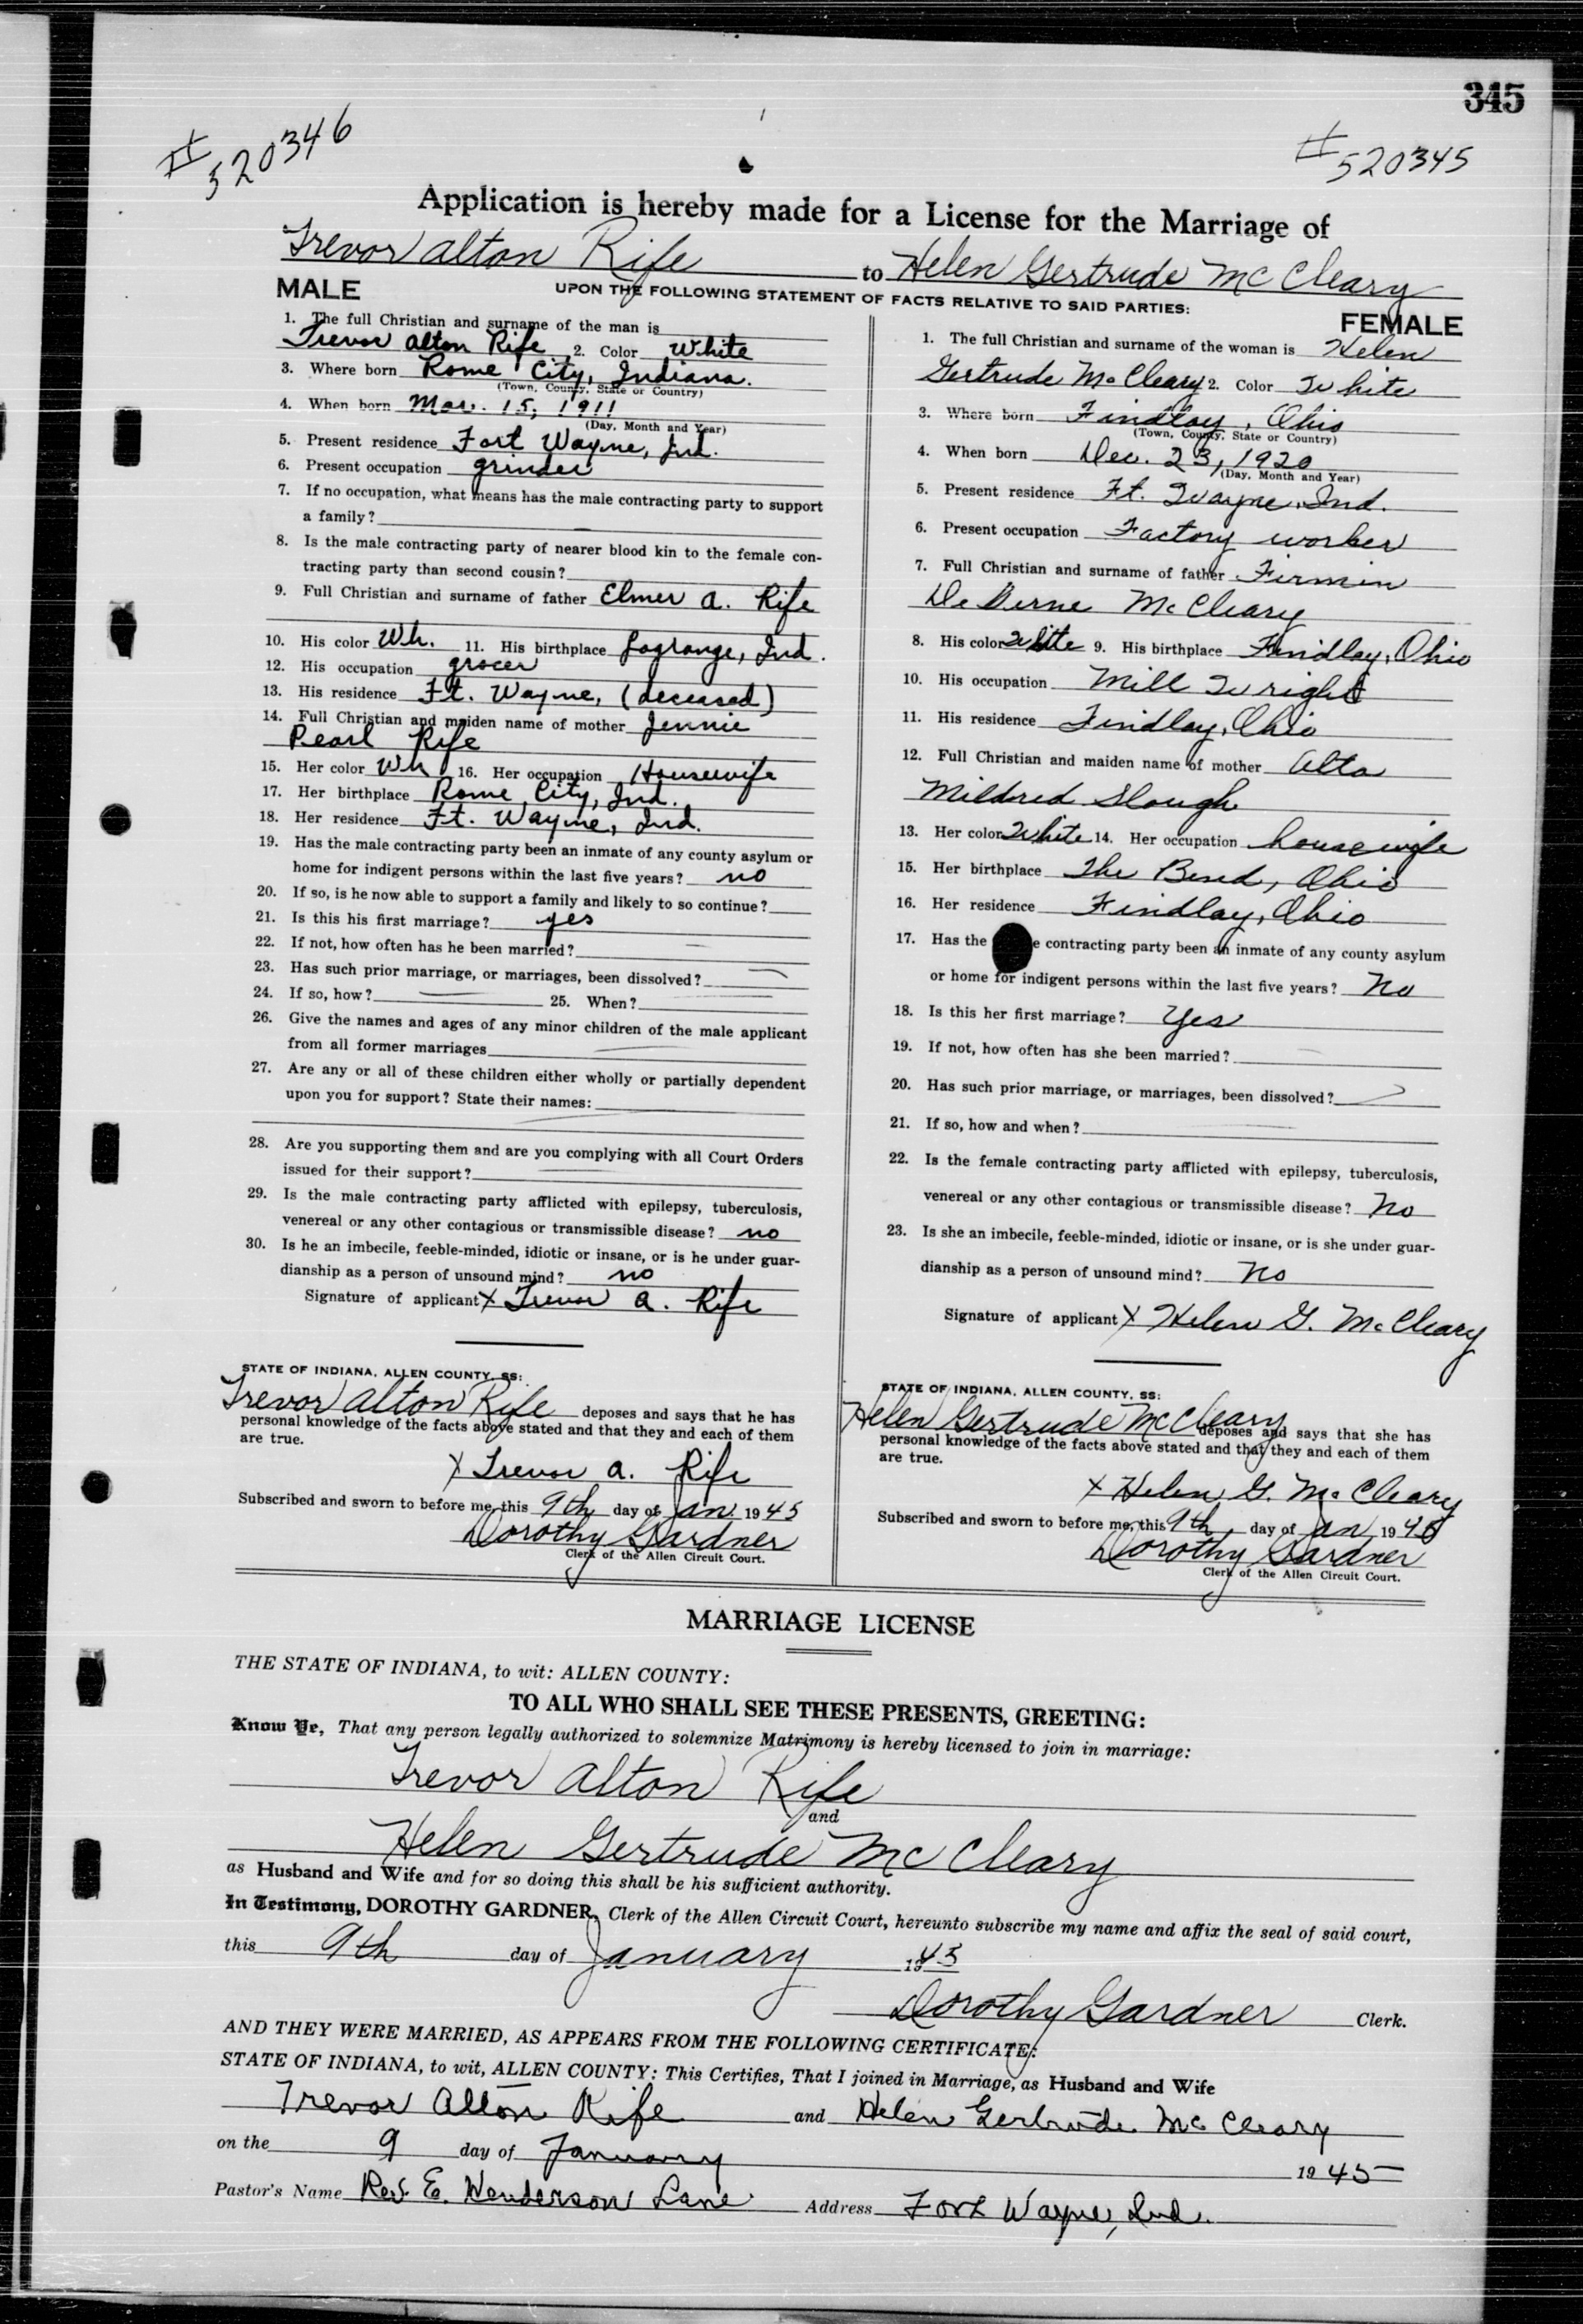 345
# 520346
# 520345
Application is hereby made for a License for the Marriage of
Trevor Alton Rife to Helen Gertrude McCleary
UPON THE FOLLOWING STATEMENT OF FACTS RELATIVE TO SAID PARTIES:
MALE
1. The full Christian and surname of the man is
Trevor Alton Rife 2. Color White
3. Where born Rome City, Indiana.
(Town, County, State or Country)
4. When born Mar. 15, 1911
(Day, Month and Year)
5. Present residence Fort Wayne, Ind.
6. Present occupation grinder
7. If no occupation, what means has the male contracting party to support
a family?
8. Is the male contracting party of nearer blood kin to the female con-
tracting party than second cousin?
9. Full Christian and surname of father Elmer A. Rife
10. His color Wh. 11. His birthplace Lagrange, Ind.
12. His occupation grocer
13. His residence Ft. Wayne, (deceased)
14. Full Christian and maiden name of mother Jennie
Pearl Rife
15. Her color Wh 16. Her occupation Housewife
17. Her birthplace Rome City, Ind.
18. Her residence Ft. Wayne, Ind.
19. Has the male contracting party been an inmate of any county asylum or
home for indigent persons within the last five years? no
20. If so, is he now able to support a family and likely to so continue?
21. Is this his first marriage? yes
22. If not, how often has he been married?
23. Has such prior marriage, or marriages, been dissolved?
24. If so, how? 25. When?
26. Give the names and ages of any minor children of the male applicant
from all former marriages
27. Are any or all of these children either wholly or partially dependent
upon you for support? State their names:
28. Are you supporting them and are you complying with all Court Orders
issued for their support?
29. Is the male contracting party afflicted with epilepsy, tuberculosis,
venereal or any other contagious or transmissible disease? no
30. Is he an imbecile, feeble-minded, idiotic or insane, or is he under guar-
dianship as a person of unsound mind? no
Signature of applicant X Trevor A. Rife
STATE OF INDIANA, ALLEN COUNTY, SS:
Trevor Alton Rife deposes and says that he has
personal knowledge of the facts above stated and that they and each of them
are true.
X Trevor A. Rife
Subscribed and sworn to before me, this 9th day of Jan. 1945
Dorothy Gardner
Clerk of the Allen Circuit Court.
FEMALE
1. The full Christian and surname of the woman is Helen
Gertrude McCleary 2. Color White
3. Where born Findlay, Ohio
(Town, County, State or Country)
4. When born Dec. 23, 1920
(Day, Month and Year)
5. Present residence Ft. Wayne, Ind.
6. Present occupation Factory worker
7. Full Christian and surname of father Firmin
De Verne McCleary
8. His color White 9. His birthplace Findlay, Ohio
10. His occupation Mill Wright
11. His residence Findlay, Ohio
12. Full Christian and maiden name of mother Alta
Mildred Slough
13. Her color White 14. Her occupation housewife
15. Her birthplace The Bend, Ohio
16. Her residence Findlay, Ohio
17. Has the e contracting party been an inmate of any county asylum
or home for indigent persons within the last five years? No
18. Is this her first marriage? Yes
19. If not, how often has she been married?
20. Has such prior marriage, or marriages, been dissolved?
21. If so, how and when?
22. Is the female contracting party afflicted with epilepsy, tuberculosis,
venereal or any other contagious or transmissible disease? No
23. Is she an imbecile, feeble-minded, idiotic or insane, or is she under guar-
dianship as a person of unsound mind? No
Signature of applicant X Helen G. McCleary
STATE OF INDIANA, ALLEN COUNTY, SS:
Helen Gertrude McCleary deposes and says that she has
personal knowledge of the facts above stated and that they and each of them
are true.
X Helen G. McCleary
Subscribed and sworn to before me, this 9th day of Jan 1945
Dorothy Gardner
Clerk of the Allen Circuit Court.
MARRIAGE LICENSE
THE STATE OF INDIANA, to wit: ALLEN COUNTY:
TO ALL WHO SHALL SEE THESE PRESENTS, GREETING:
Know Ye, That any person legally authorized to solemnize Matrimony is hereby licensed to join in marriage:
Trevor Alton Rife
and
Helen Gertrude McCleary
as Husband and Wife and for so doing this shall be his sufficient authority.
In Testimony, DOROTHY GARDNER, Clerk of the Allen Circuit Court, hereunto subscribe my name and affix the seal of said court,
this 9th day of January 1945
Dorothy Gardner Clerk.
AND THEY WERE MARRIED, AS APPEARS FROM THE FOLLOWING CERTIFICATE:
STATE OF INDIANA, to wit, ALLEN COUNTY: This Certifies, That I joined in Marriage, as Husband and Wife
Trevor Alton Rife and Helen Gertrude McCleary
on the 9 day of January 1945
Pastor's Name Rev. E. Henderson Lane Address Fort Wayne, Ind.